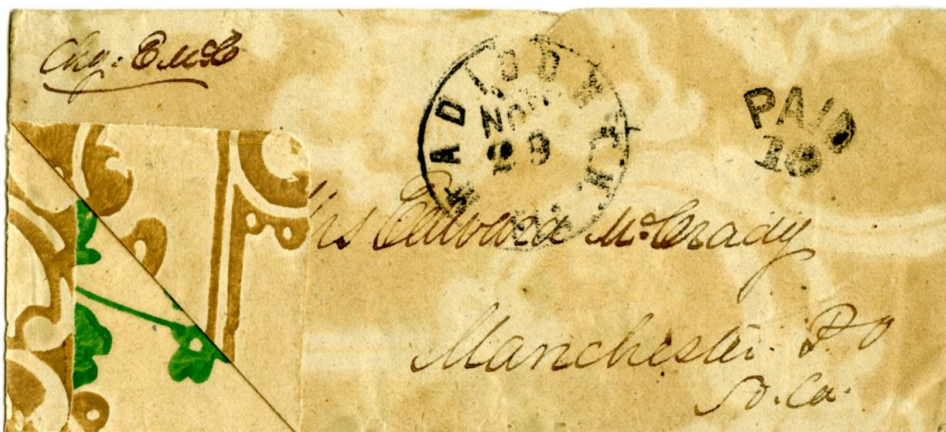 Chg. E McC
NOV
29
PAID
10
Mrs Edward McCrady
Manchester P.O
So. Ca.